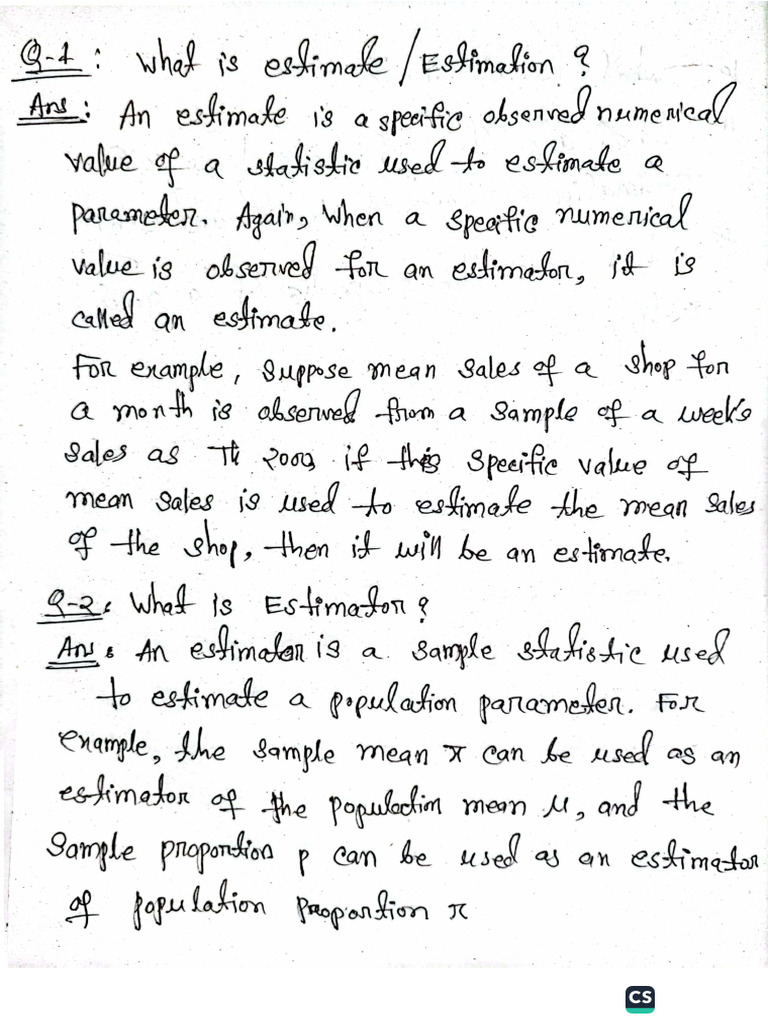 Q-1: What is estimate/Estimation?
Ans: An estimate is a specific observed numerical
value of a statistic used to estimate a
parameter. Again, When a specific numerical
value is observed for an estimator, it is
called an estimate.
For example, suppose mean sales of a shop for
a month is observed from a sample of a week's
sales as Tk 2000 if this specific value of
mean sales is used to estimate the mean sales
of the shop, then it will be an estimate.
Q-2: What is Estimator?
Ans: An estimator is a sample statistic used
to estimate a population parameter. For
example, the sample mean x̄ can be used as an
estimator of the population mean μ, and the
Sample proportion p can be used as an estimator
of population proportion π
CS